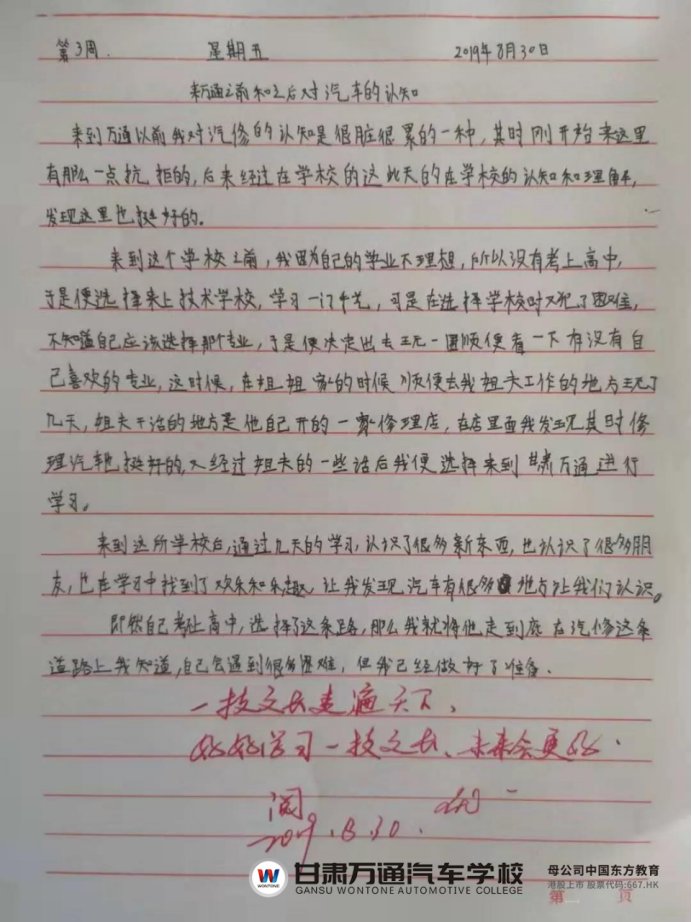 第3周. 星期五 2019年8月30日
来万通之前和之后对汽车的认知
来到万通以前我对汽修的认知是很脏很累的一种,其时刚开始来这里
有那么一点抗拒的,后来经过在学校的这些天的在学校的认知和理解,
发现这里也挺好的.
来到这个学校之前,我因为自己的学业不理想,所以没有考上高中,
于是便选择来上技术学校,学习一门手艺,可是在选择学校时又犯了困难,
不知道自己应该选择那个专业,于是便决定出去玩一圈顺便看一下有没有自
己喜欢的专业,这时候,在姐姐家的时候顺便去我姐夫工作的地方玩了
几天,姐夫干活的地方是他自己开的一家修理店,在店里面我发现其时修
理汽车也挺好的,又经过姐夫的一些话后我便选择来到甘肃万通进行
学习。
来到这所学校后,通过几天的学习,认识了很多新东西,也认识了很多朋
友,也在学习中找到了欢乐和乐趣,让我发现汽车有很多地方让我们认识。
即然自己考上高中,选择了这条路,那么我就将他走到底在汽修这条
道路上我知道,自己会遇到很多困难,但我已经做好了准备.
一技之长走遍天下、
好好学习一技之长、未来会更好.
阅
2019.8.30.
甘肃万通汽车学校
GANSU WONTONE AUTOMOTIVE COLLEGE
WONTONE
母公司中国东方教育
港股上市 股票代码:667.HK
第 页